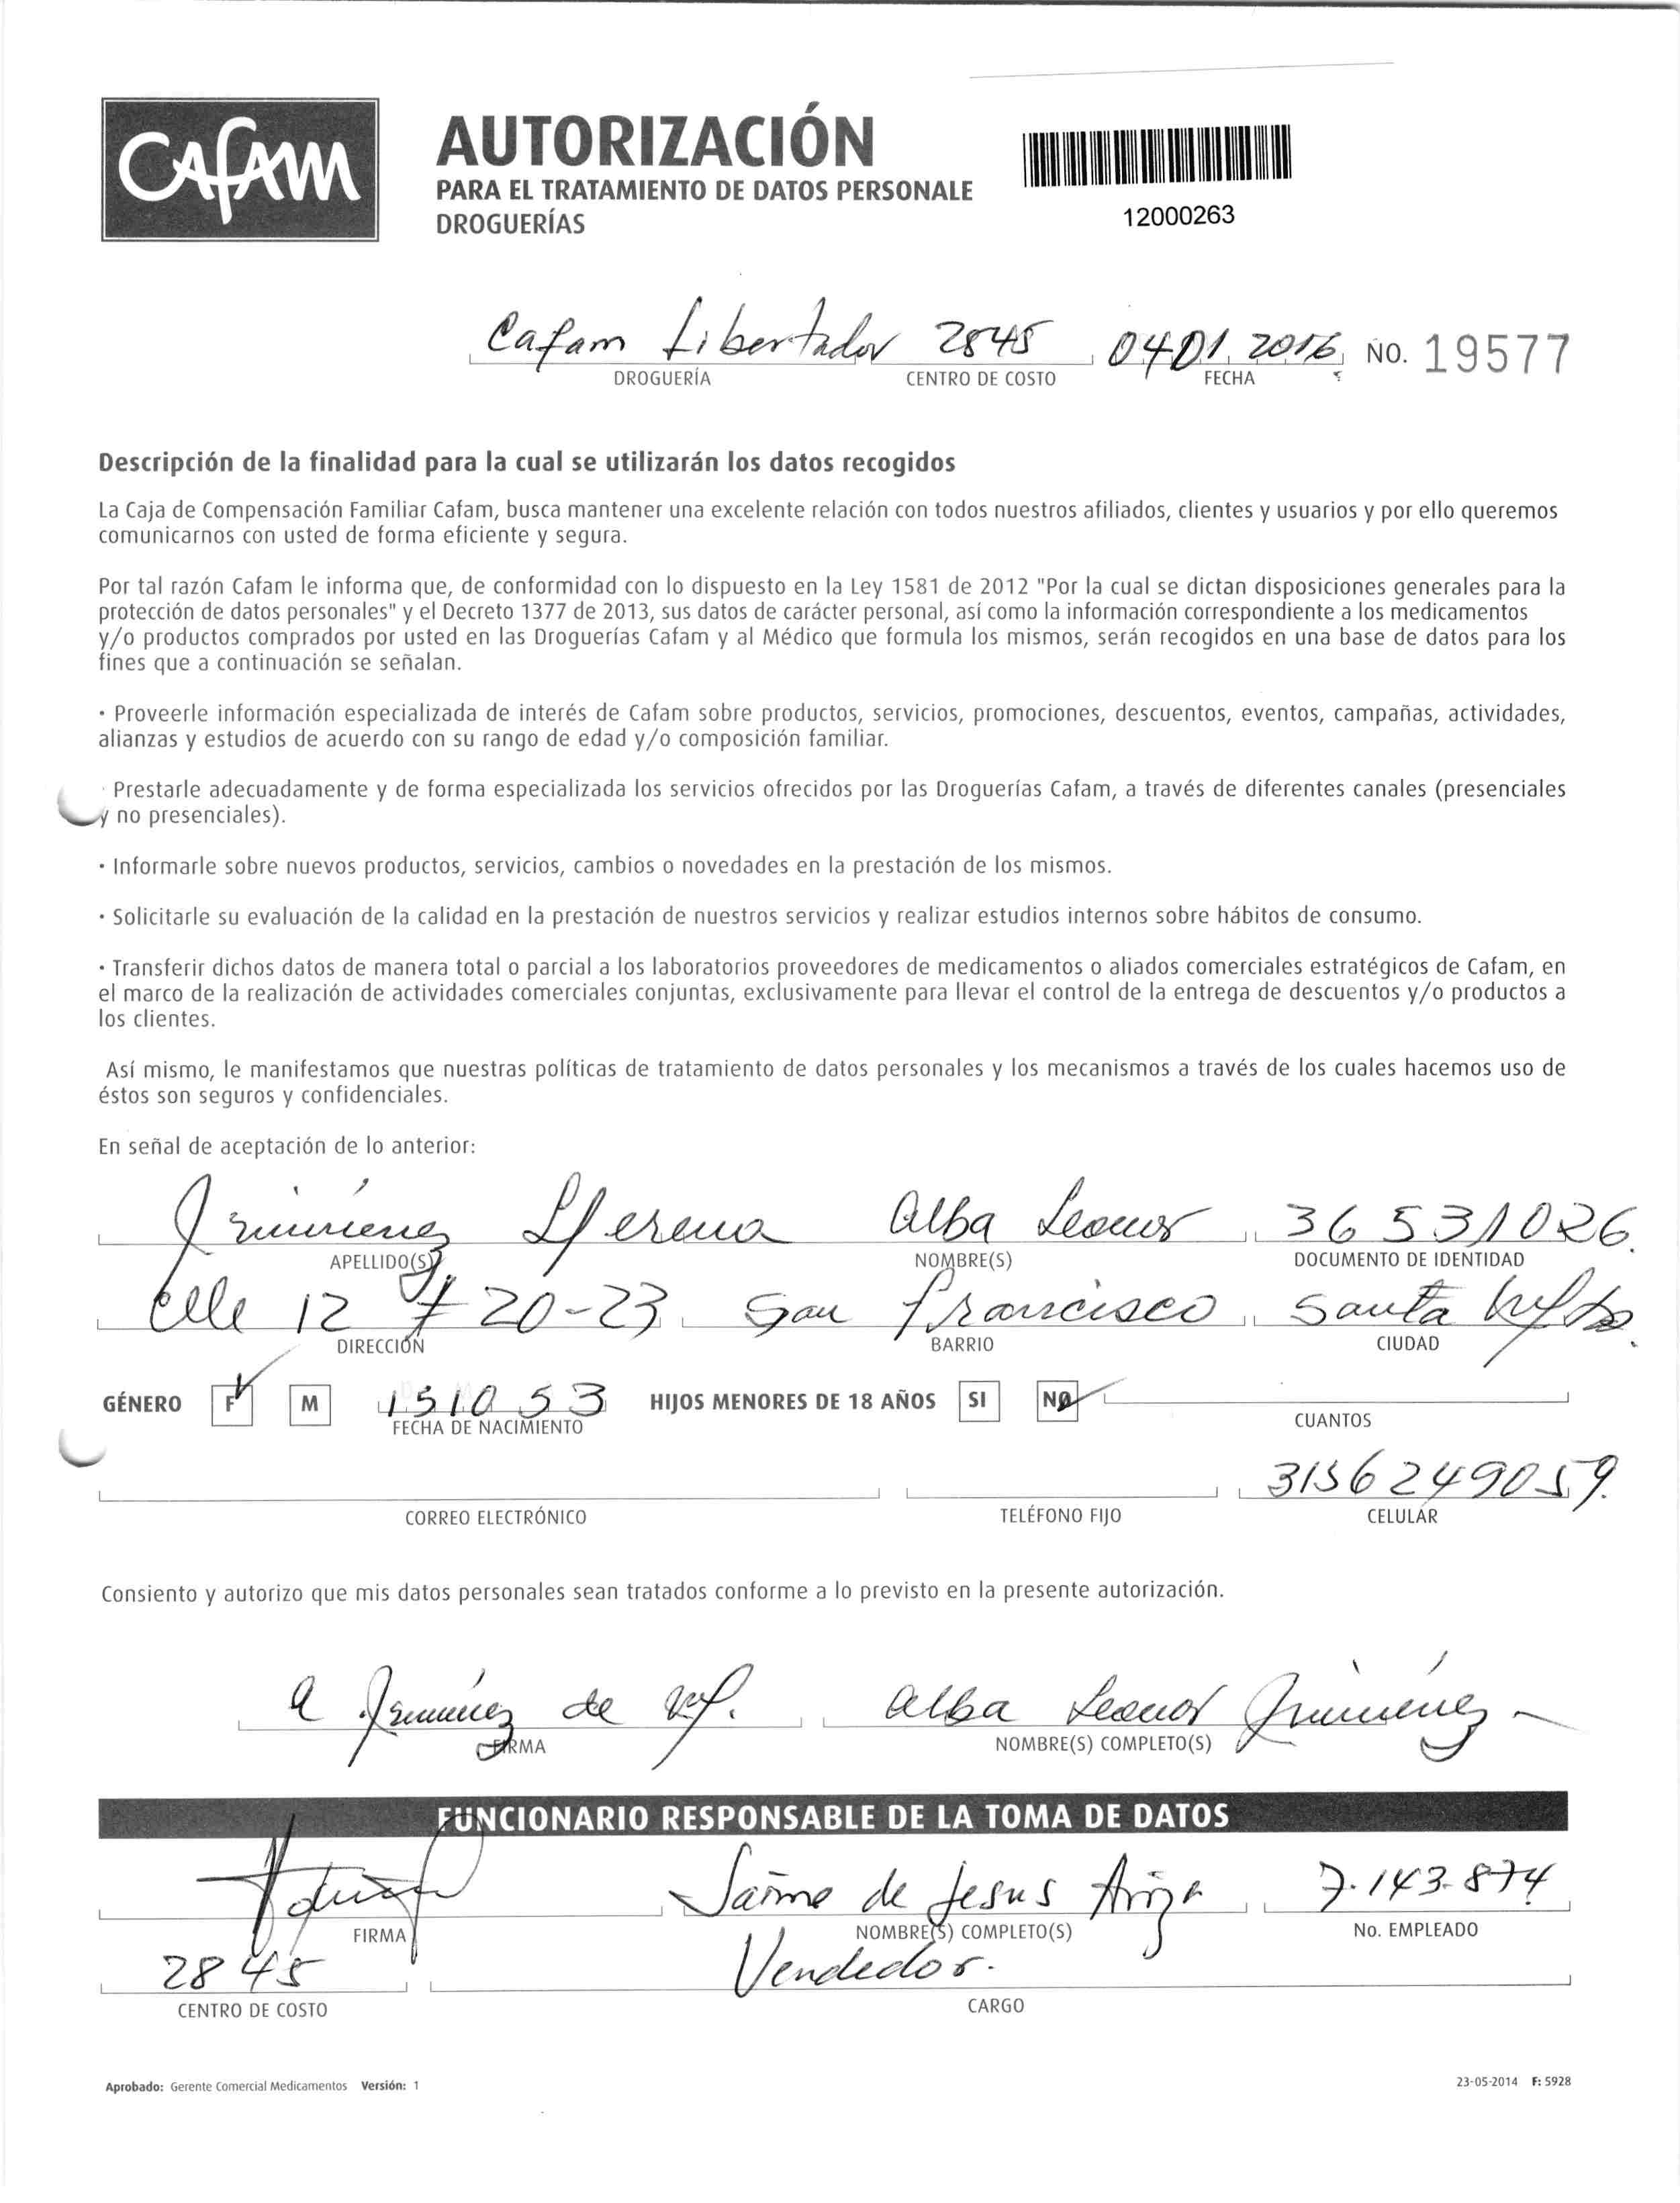 CAFAM
AUTORIZACIÓN
PARA EL TRATAMIENTO DE DATOS PERSONALE
DROGUERÍAS
12000263
Cafam Libertador 2845 04 01 2016 NO. 19577
DROGUERÍA CENTRO DE COSTO FECHA
Descripción de la finalidad para la cual se utilizarán los datos recogidos
La Caja de Compensación Familiar Cafam, busca mantener una excelente relación con todos nuestros afiliados, clientes y usuarios y por ello queremos
comunicarnos con usted de forma eficiente y segura.
Por tal razón Cafam le informa que, de conformidad con lo dispuesto en la Ley 1581 de 2012 "Por la cual se dictan disposiciones generales para la
protección de datos personales" y el Decreto 1377 de 2013, sus datos de carácter personal, así como la información correspondiente a los medicamentos
y/o productos comprados por usted en las Droguerías Cafam y al Médico que formula los mismos, serán recogidos en una base de datos para los
fines que a continuación se señalan.
· Proveerle información especializada de interés de Cafam sobre productos, servicios, promociones, descuentos, eventos, campañas, actividades,
alianzas y estudios de acuerdo con su rango de edad y/o composición familiar.
· Prestarle adecuadamente y de forma especializada los servicios ofrecidos por las Droguerías Cafam, a través de diferentes canales (presenciales
y no presenciales).
· Informarle sobre nuevos productos, servicios, cambios o novedades en la prestación de los mismos.
· Solicitarle su evaluación de la calidad en la prestación de nuestros servicios y realizar estudios internos sobre hábitos de consumo.
· Transferir dichos datos de manera total o parcial a los laboratorios proveedores de medicamentos o aliados comerciales estratégicos de Cafam, en
el marco de la realización de actividades comerciales conjuntas, exclusivamente para llevar el control de la entrega de descuentos y/o productos a
los clientes.
Así mismo, le manifestamos que nuestras políticas de tratamiento de datos personales y los mecanismos a través de los cuales hacemos uso de
éstos son seguros y confidenciales.
En señal de aceptación de lo anterior:
Jiménez Llerena Alba Leonor 36531026.
APELLIDO(S) NOMBRE(S) DOCUMENTO DE IDENTIDAD
Clle 12 # 20-23 San Francisco Santa
DIRECCIÓN BARRIO CIUDAD
GÉNERO F M 15 10 53 HIJOS MENORES DE 18 AÑOS SI NO
FECHA DE NACIMIENTO CUANTOS
3136249059.
CORREO ELECTRÓNICO TELÉFONO FIJO CELULAR
Consiento y autorizo que mis datos personales sean tratados conforme a lo previsto en la presente autorización.
A Jiménez de Alba Leonor Jiménez
FIRMA NOMBRE(S) COMPLETO(S)
FUNCIONARIO RESPONSABLE DE LA TOMA DE DATOS
Jaime de Jesus Ariza 7.143.874
FIRMA NOMBRE(S) COMPLETO(S) No. EMPLEADO
2845 Vendedor.
CENTRO DE COSTO CARGO
Aprobado: Gerente Comercial Medicamentos Versión: 1 23-05-2014 F: 5928